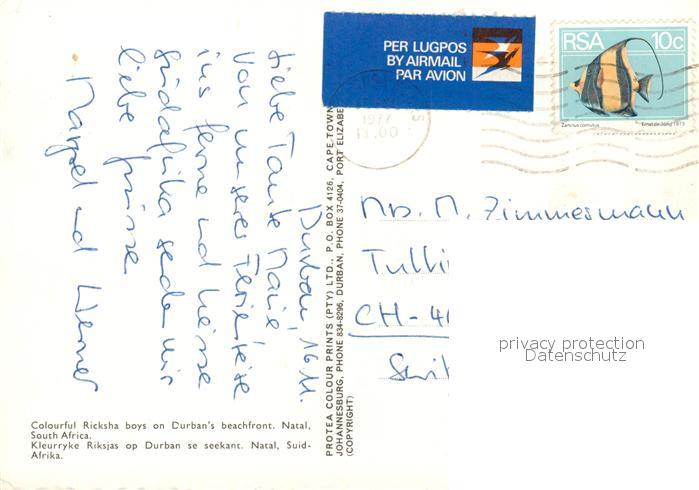 PER LUGPOS
BY AIRMAIL
PAR AVION
RSA 10c
Zanclus cornutus Ernst de Jong 1973
1977
Durban, 16.11.
Liebe Tante Marie
Von unserer Ferienreise
ins ferne und heisse
Südafrika senden wir
liebe Grüsse
und Werner
Mrs. M. Zimmermann
CH-
PROTEA COLOUR PRINTS (PTY) LTD., P.O. BOX 4126, CAPE-TOWN
JOHANNESBURG, PHONE 834-8296, DURBAN, PHONE 37-0404, PORT ELIZABE
(COPYRIGHT)
privacy protection
Datenschutz
Colourful Ricksha boys on Durban's beachfront. Natal,
South Africa.
Kleurryke Riksjas op Durban se seekant. Natal, Suid-
Afrika.